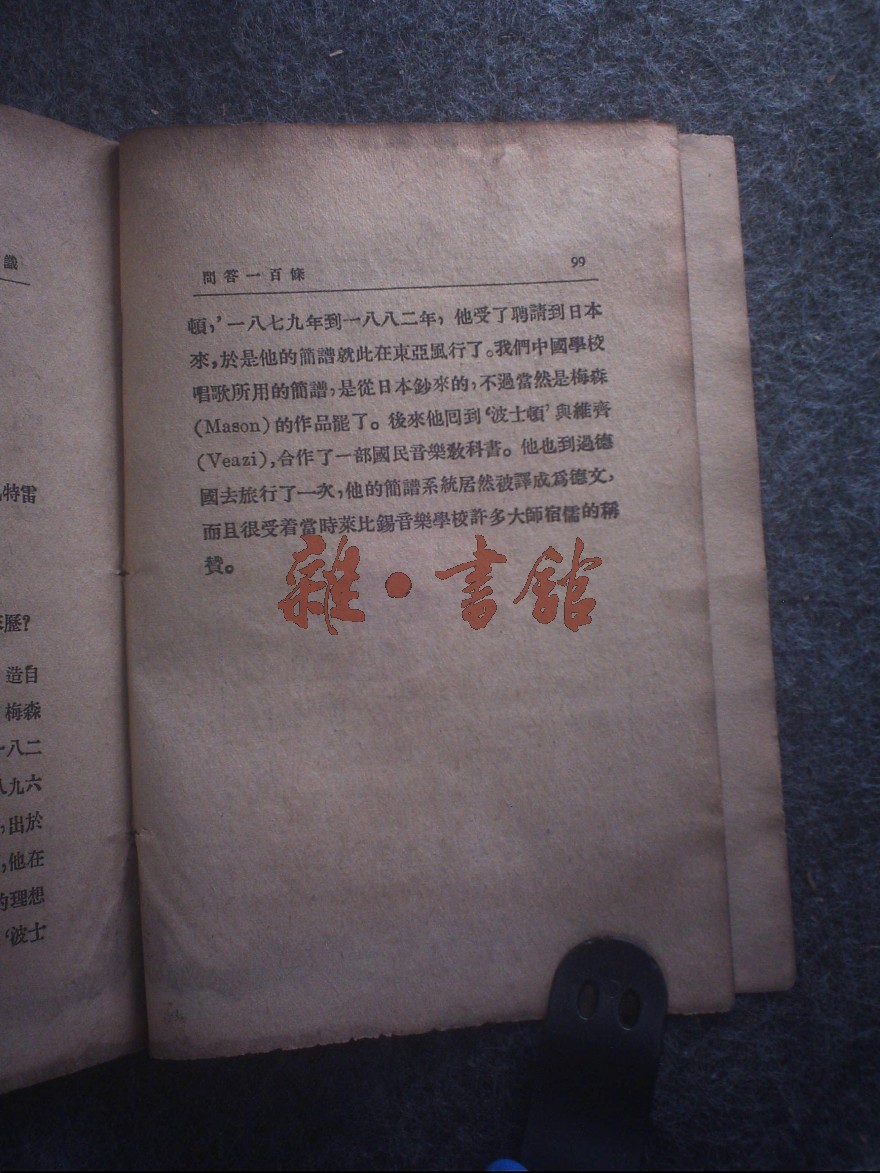 識
特雷
歷?
造自
梅森
一八二
八九六
,出於
,他在
的理想
‘波士
問答一百條 99
頓,’一八七九年到一八八二年,他受了聘請到日本
來,於是他的簡譜就此在東亞風行了。我們中國學校
唱歌所用的簡譜,是從日本鈔來的,不過當然是梅森
(Mason)的作品罷了。後來他回到‘波士頓’與維齊
(Veazi),合作了一部國民音樂敎科書。他也到過德
國去旅行了一次,他的簡譜系統居然被譯成爲德文,
而且很受着當時萊比錫音樂學校許多大師宿儒的稱
贊。
雜·書館